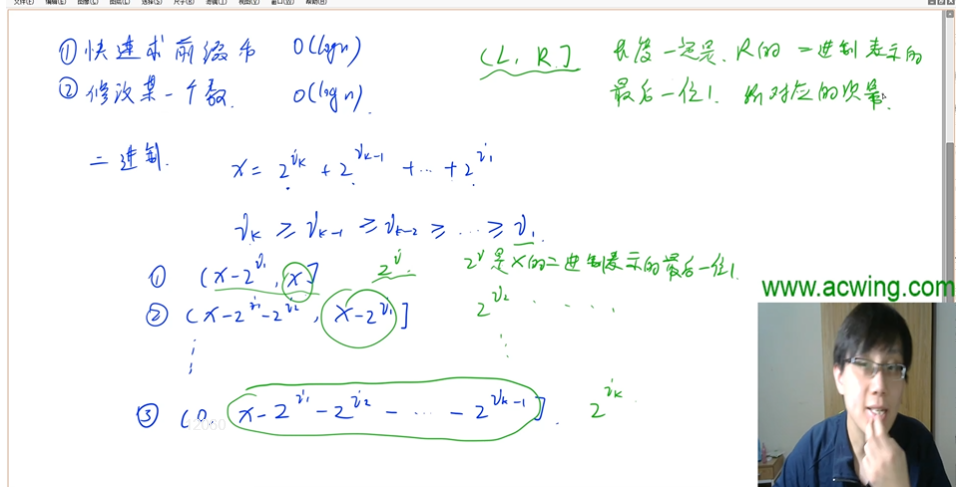 ① 快速求前缀和 O(logn)
② 修改某一个数. O(logn).
(L, R] 长度一定是. R的二进制表示的
最后一位1. 所对应的次幂.
二进制. x = 2^{i_k} + 2^{i_{k-1}} + … + 2^{i_1}
i_k ≥ i_{k-1} ≥ i_{k-2} ≥ … ≥ i_1.
① (x-2^{i_1}, x] 2^{i_1} 2^{i_1}是x的二进制表示的最后一位1.
② (x-2^{i_1}-2^{i_2}, x-2^{i_1}] 2^{i_2} . . . .
⋮
③ (0, x-2^{i_1}-2^{i_2}-…-2^{i_{k-1}}]. 2^{i_k}
www.acwing.com